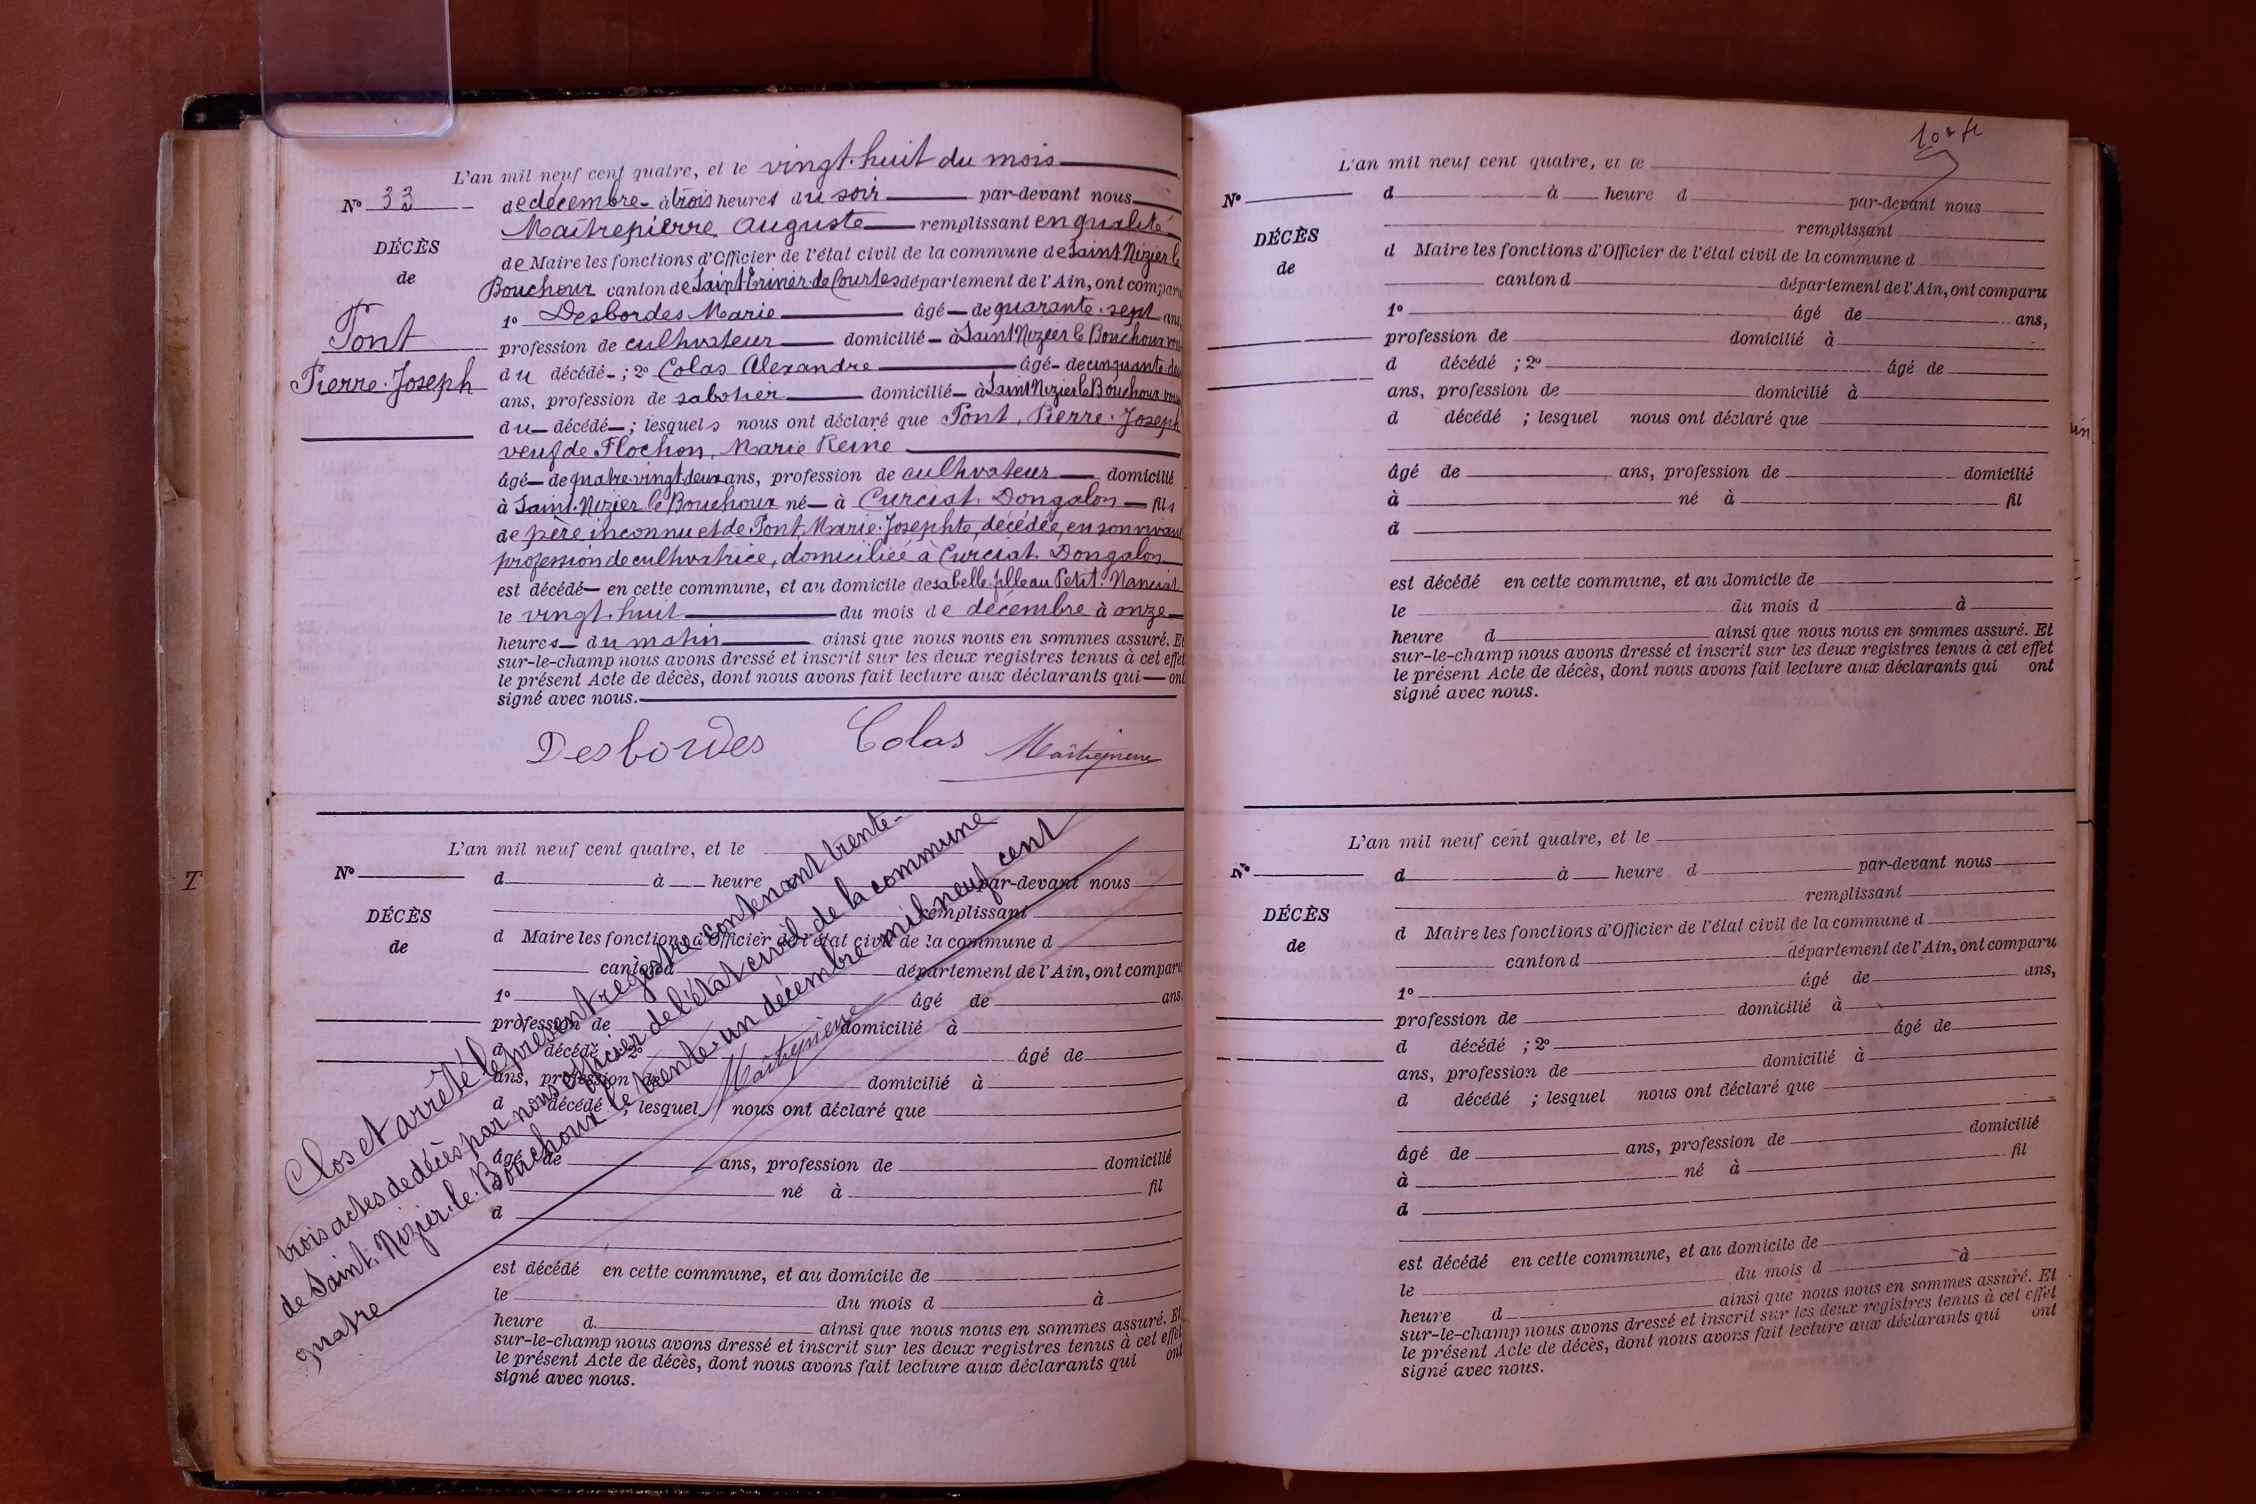 L'an mil neuf cent quatre, et le vingt-huit du mois
N° 33
de décembre à trois heures du soir par-devant nous
Maîtrepierre Auguste remplissant en qualité
DÉCÈS
de Maire les fonctions d'Officier de l'état civil de la commune de Saint Nizier le
de
Bouchoux canton de Saint Trivier de Courtes département de l'Ain, ont comparu
1° Desbordes Marie âgé de quarante-sept ans,
Pont
profession de cultivateur domicilié à Saint Nizier le Bouchoux
du décédé ; 2° Colas Alexandre âgé de cinquante
Pierre-Joseph
ans, profession de sabotier domicilié à Saint Nizier le Bouchoux
du décédé ; lesquels nous ont déclaré que Pont, Pierre-Joseph
veuf de Flochon, Marie Reine
âgé de quatre-vingt-deux ans, profession de cultivateur domicilié
à Saint-Nizier le Bouchoux né à Curciat-Dongalon fils
de père inconnu et de Pont, Marie-Josephte, décédée, en son vivant
profession de cultivatrice, domiciliée à Curciat-Dongalon
est décédé en cette commune, et au domicile de sa belle-fille au Petit-Nanciat
le vingt-huit du mois de décembre à onze
heures du matin ainsi que nous nous en sommes assuré. Et
sur-le-champ nous avons dressé et inscrit sur les deux registres tenus à cet effet
le présent Acte de décès, dont nous avons fait lecture aux déclarants qui ont
signé avec nous.
Desbordes Colas Maîtrepierre
L'an mil neuf cent quatre, et le
N°
d à heure par-devant nous
DÉCÈS
remplissant
de
d Maire les fonctions d'Officier de l'état civil de la commune d
canton d département de l'Ain, ont comparu
1° âgé de ans,
profession de domicilié à
d décédé ; 2° âgé de
ans, profession de domicilié à
d décédé ; lesquel nous ont déclaré que
âgé de ans, profession de domicilié
à né à fil
d
est décédé en cette commune, et au domicile de
le du mois d à
heure d ainsi que nous nous en sommes assuré. Et
sur-le-champ nous avons dressé et inscrit sur les deux registres tenus à cet effet
le présent Acte de décès, dont nous avons fait lecture aux déclarants qui ont
signé avec nous.
Clos et arrêté le présent registre contenant trente-
trois actes de décès par nous officier de l'état civil de la commune
de Saint-Nizier-le-Bouchoux le trente-un décembre mil neuf cent
quatre
Maîtrepierre
T
L'an mil neuf cent quatre, et le
N°
d à heure d par-devant nous
DÉCÈS
remplissant
de
d Maire les fonctions d'Officier de l'état civil de la commune d
canton d département de l'Ain, ont comparu
1° âgé de ans,
profession de domicilié à
d décédé ; 2° âgé de
ans, profession de domicilié à
d décédé ; lesquel nous ont déclaré que
âgé de ans, profession de domicilié
à né à fil
d
est décédé en cette commune, et au domicile de
le du mois d à
heure d ainsi que nous nous en sommes assuré. Et
sur-le-champ nous avons dressé et inscrit sur les deux registres tenus à cet effet
le présent Acte de décès, dont nous avons fait lecture aux déclarants qui ont
signé avec nous.
L'an mil neuf cent quatre, et le
N°
d à heure d par-devant nous
DÉCÈS
remplissant
de
d Maire les fonctions d'Officier de l'état civil de la commune d
canton d département de l'Ain, ont comparu
1° âgé de ans,
profession de domicilié à
d décédé ; 2° âgé de
ans, profession de domicilié à
d décédé ; lesquel nous ont déclaré que
âgé de ans, profession de domicilié
à né à fil
d
est décédé en cette commune, et au domicile de
le du mois d à
heure d ainsi que nous nous en sommes assuré. Et
sur-le-champ nous avons dressé et inscrit sur les deux registres tenus à cet effet
le présent Acte de décès, dont nous avons fait lecture aux déclarants qui ont
signé avec nous.